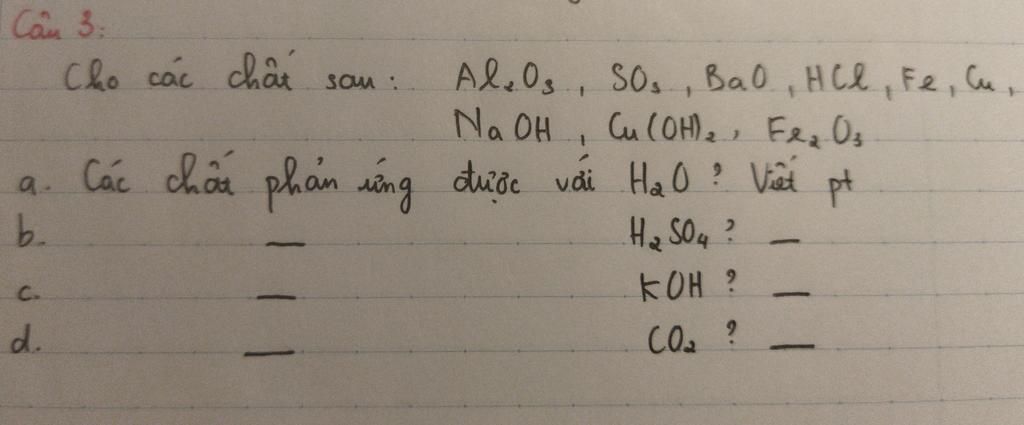 Câu 3:
Cho các chất sau: Al₂O₃, SO₃, BaO, HCl, Fe, Cu,
NaOH, Cu(OH)₂, Fe₂O₃
a. Các chất phản ứng được với H₂O? Viết pt
b. — H₂SO₄? —
c. — KOH? —
d. — CO₂? —